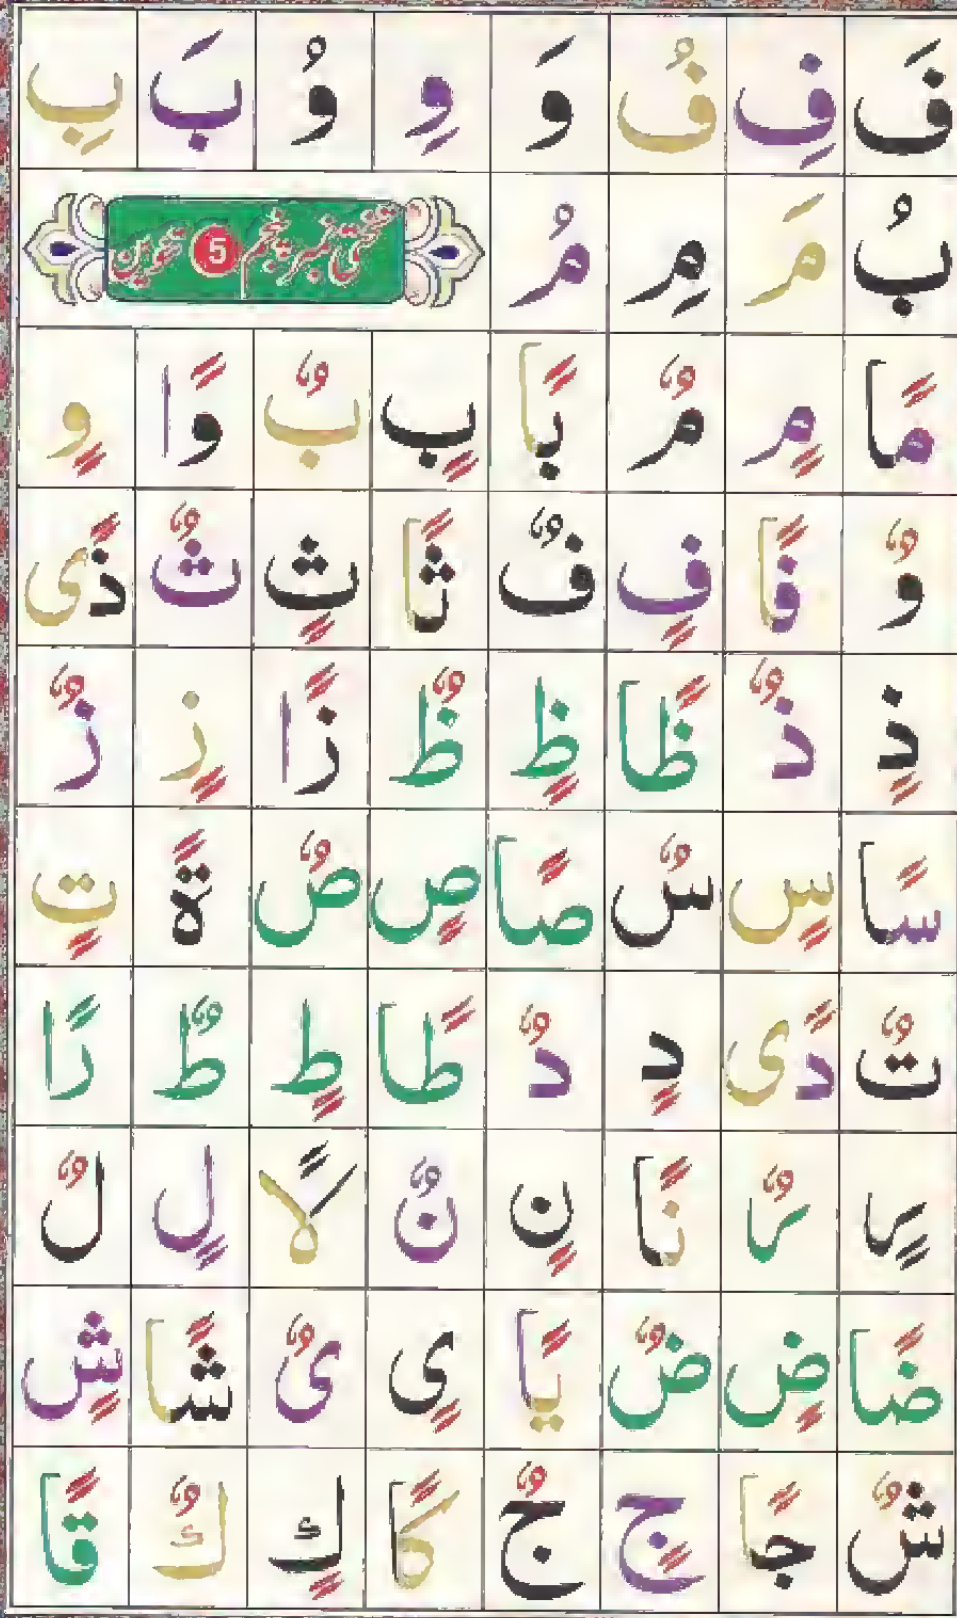 فَ فِ فُ وَ وِ وُ بَ بِ
بُ مَ مِ مُ تختی نمبر پنجم 5 تنوین
مًا مٍ مٌ بًا بٍ بٌ وًا وٍ
وٌ فًا فٍ فٌ ثًا ثٍ ثٌ ذًى
ذٍ ذٌ ظًا ظٍ ظٌ زًا زٍ زٌ
سًا سٍ سٌ صًا صٍ صٌ ةً تٍ
تٌ دًى دٍ دٌ طًا طٍ طٌ رًا
رٍ رٌ نًا نٍ نٌ لًا لٍ لٌ
ضًا ضٍ ضٌ يًا ىٍ ىٌ شًا شٍ
شٌ جًا جٍ جٌ كًا كٍ كٌ قًا